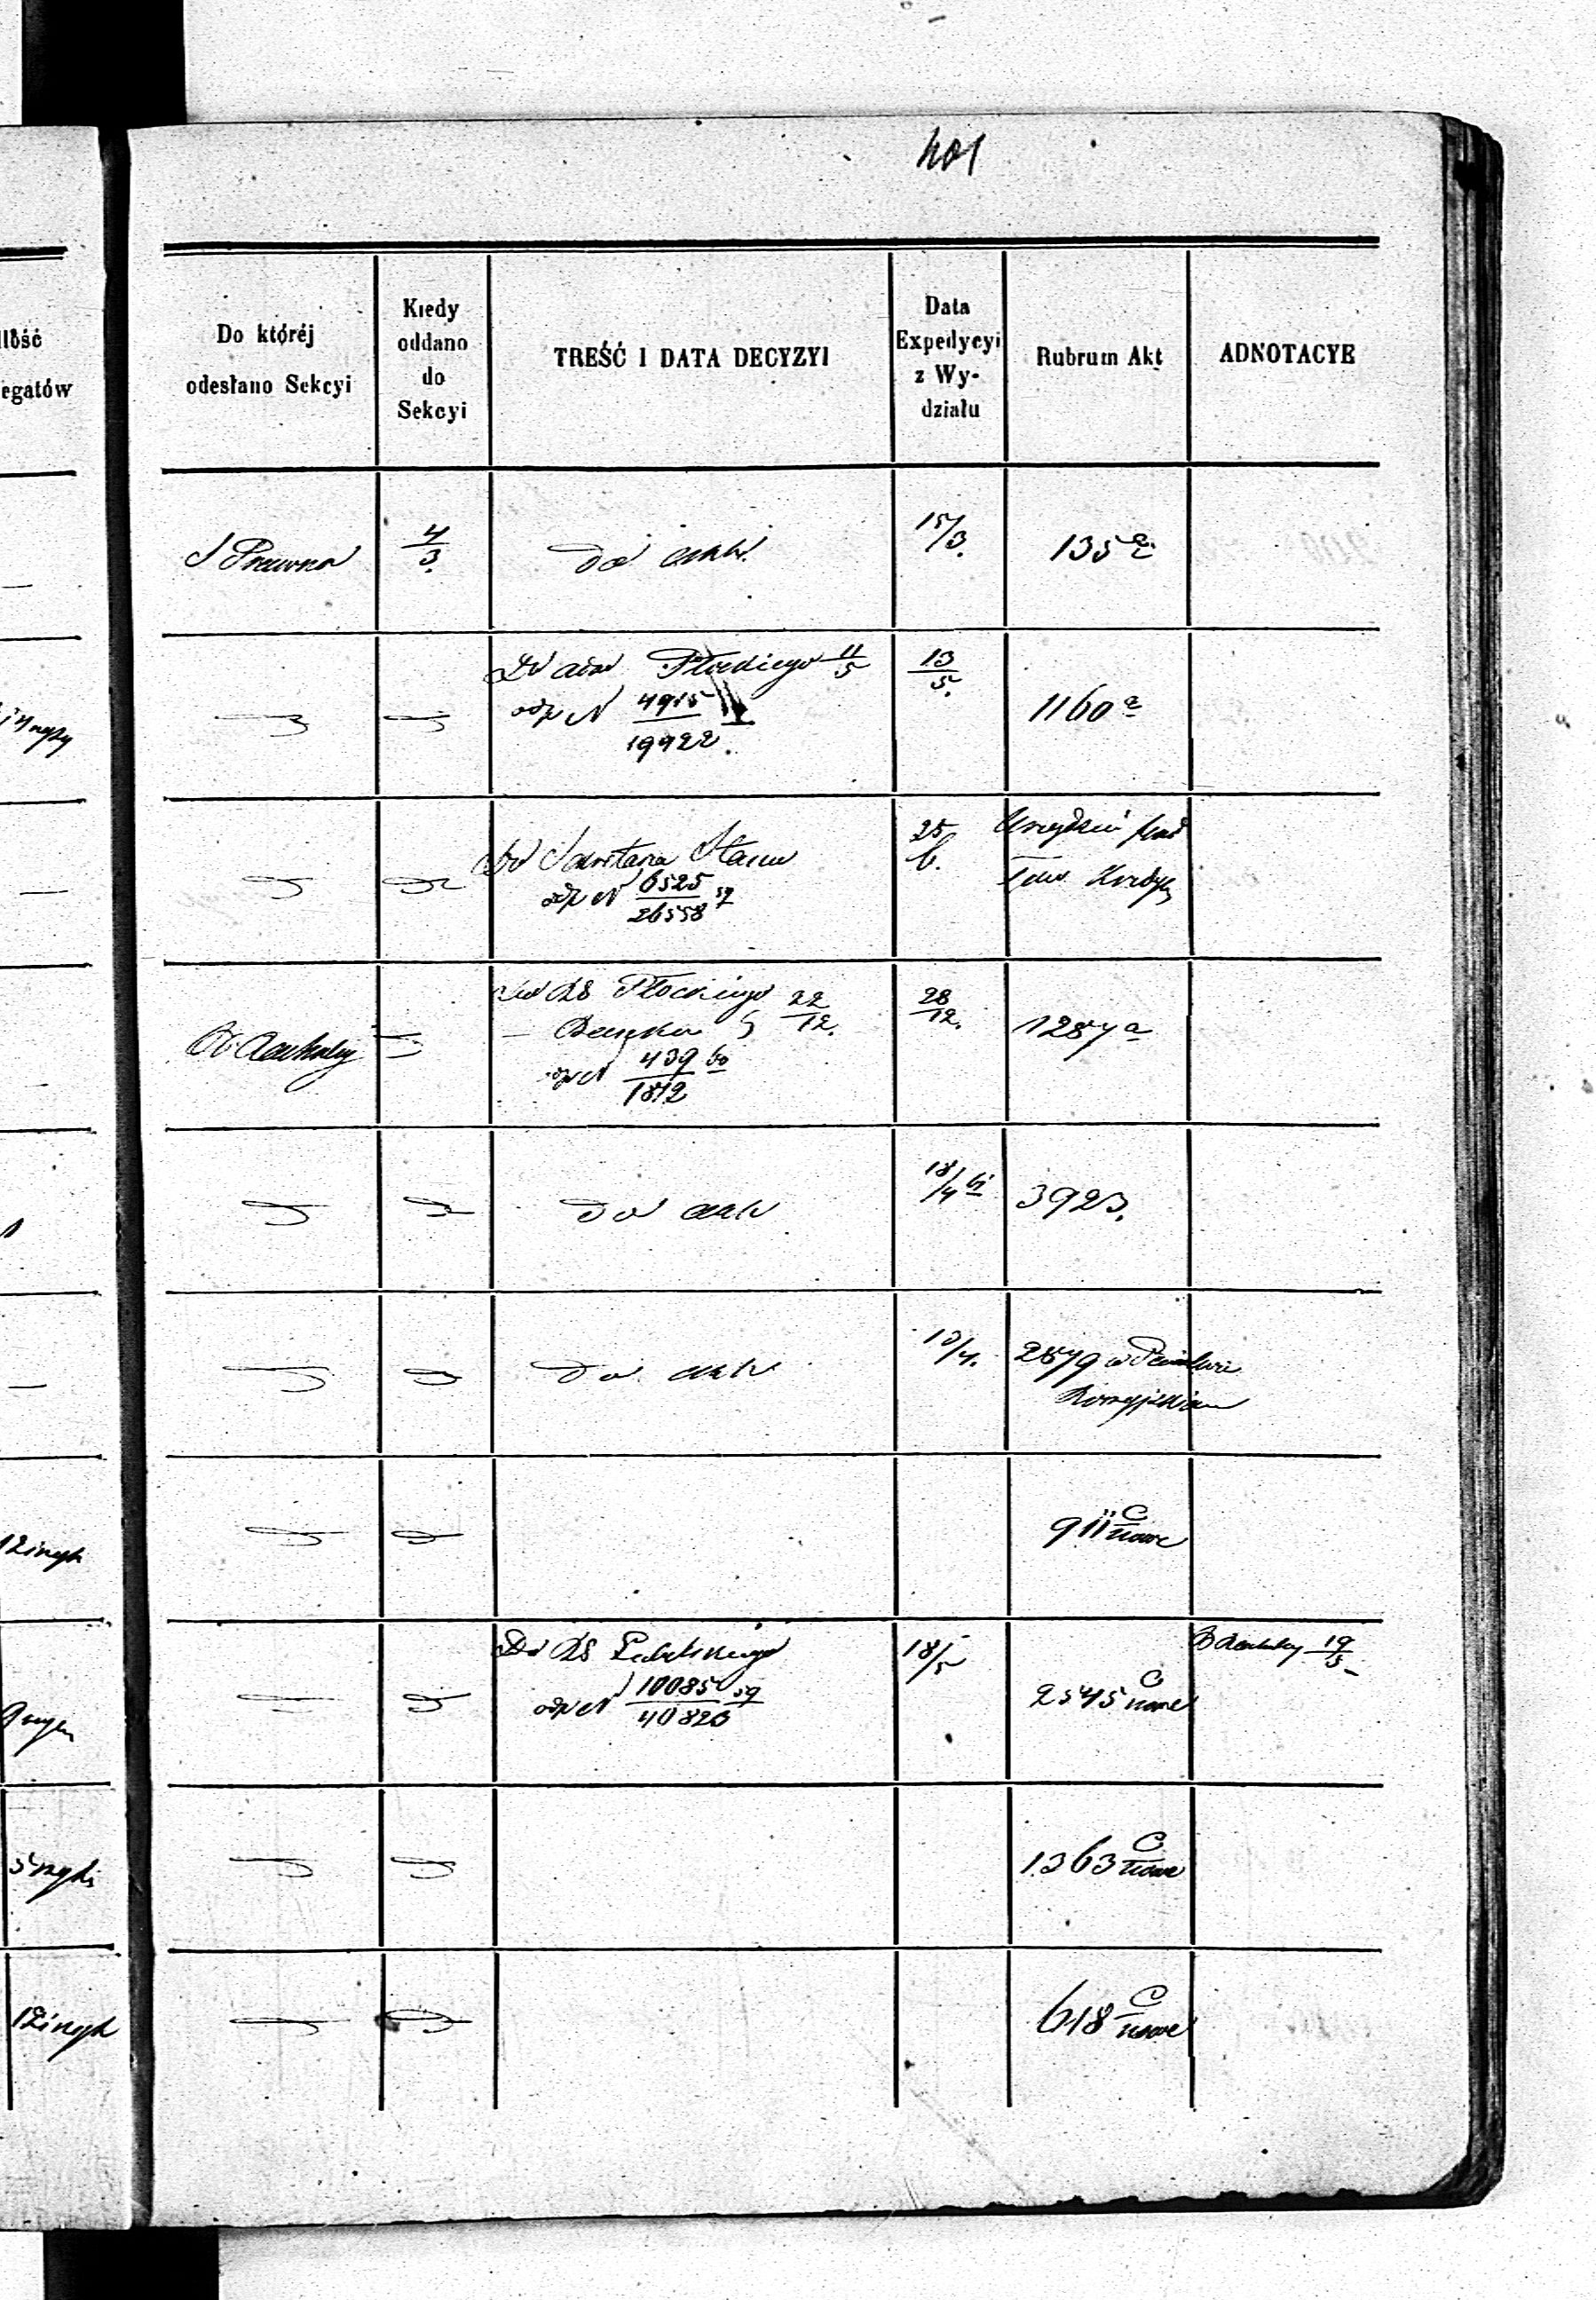 401
Ilość
egatów
Do któréj
odesłano Sekcyi
Kiedy
oddano
do
Sekcyi
TREŚĆ I DATA DECYZYI
Data
Expedycyi
z Wy-
działu
Rubrum Akt
ADNOTACYE
S Prawna
4/3
do akt
15/3.
135 a
Płockiego 11/5
odp N 4915/19922
13/5.
1160 a
Do Sekretarza Stanu
odp N 6525/26558 59
25/6.
Do DS Płockiego 22/12.
— Banku
odp N 439/1812 60
28/12.
1287 a
do akt
18/4 61
3923.
do akt
13/4.
2879 w
911 C nowe
Do DS Lubelskiego
odp N 10085/40823 59
18/5
2545 C nowe
19/5
1363 C nowe
618 C nowe